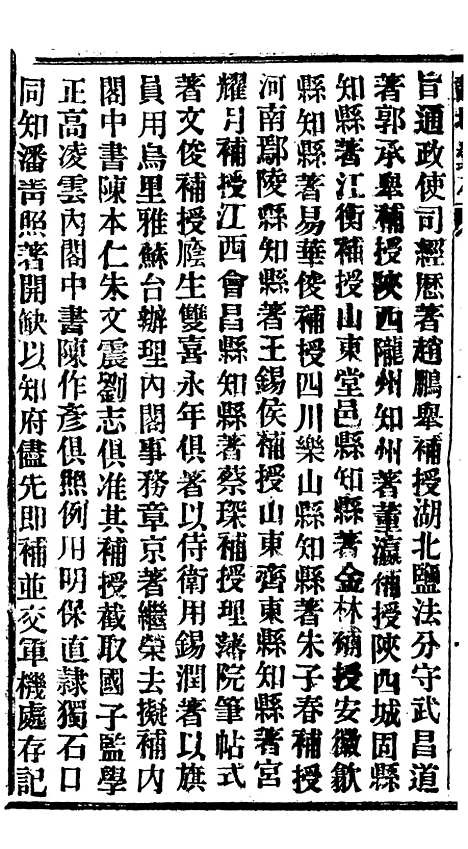 旨通政使司經歷著趙鵬舉補授湖北鹽法分守武昌道
著郭承舉補授陜西隴州知州著董瀛補授陜西城固縣
知縣著江衡補授山東堂邑縣知縣著金林補授安徽歙
縣知縣著易華俊補授四川樂山縣知縣著朱子春補授
河南鄢陵縣知縣著王錫侯補授山東齊東縣知縣著宮
耀月補授江西會昌縣知縣著蔡琛補授理藩院筆帖式
著文俊補授廕生雙喜永年俱著以侍衛用錫潤著以旗
員用烏里雅蘇台辦理內閣事務章京著繼榮去擬補內
閣中書陳本仁朱文震劉志俱准其補授截取國子監學
正高凌雲內閣中書陳作彥俱照例用明保直隷獨石口
同知潘青照著開缺以知府儘先即補並交軍機處存記